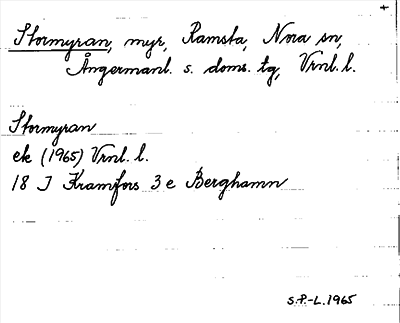 Stormyran, myr, Ramsta, Nora sn,
Ångermanl. s. doms. tg, Vrnl. l.
Stormyran
ek (1965) Vrnl. l.
18 J Kramfors 3 e Berghamn
S.P.-L. 1965